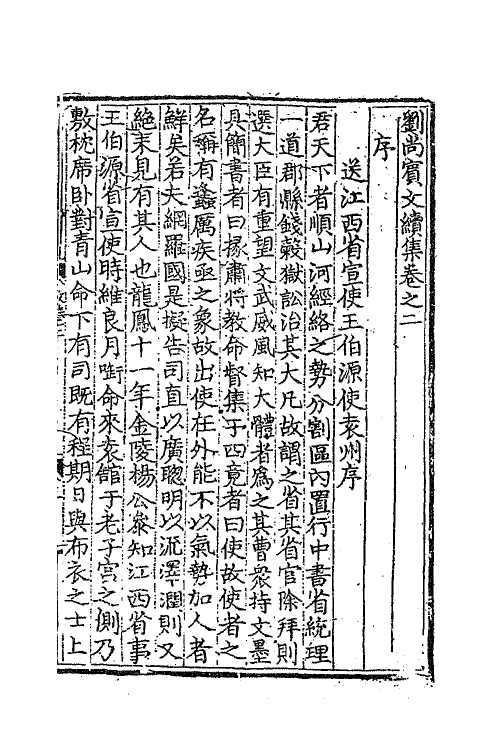 劉尚賓文續集卷之二
序
送江西省宣使王伯源使袁州序
君天下者順山河經絡之勢分割區內置行中書省統理
一道郡縣錢穀獄訟治其大凡故謂之省其省官除拜則
選大臣有重望文武威風知大體者為之其曹衆持文墨
具簡書者曰掾肅將教命督集于四竟者曰使故使者之
名稱有蠭厲疾亟之象故出使在外能不以氣勢加人者
鮮矣若夫網羅國是擬告司直以廣聰明以沠澤潤則又
絕未見有其人也龍鳳十一年金陵楊公叅知江西省事
王伯源省宣使時維良月啣命來袁舘于老子宮之側乃
敷枕席卧對青山命下有司既有程期日與布衣之士上